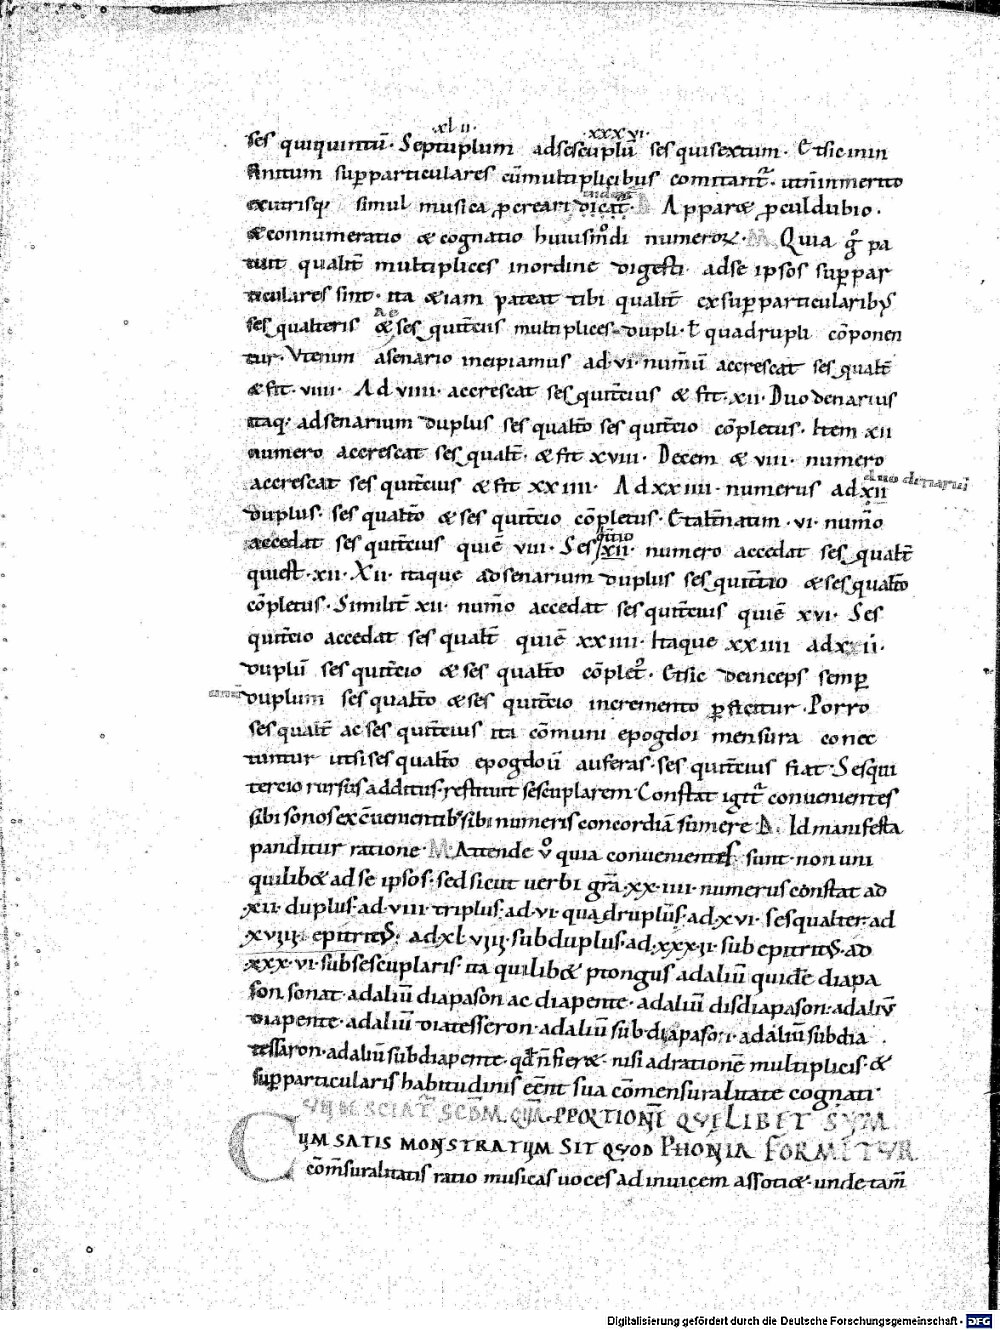 ·xl ii· ·xxxvi·
ses quiquintū· Septuplum adsescuplū sesquisextum· Etsic inin
finitum supparticulares cūmultiplicibus comitant· utñinmerito
exutrisq; simul musica pcreari dicat· Δ Apparet pculdubio·
& connumeratio & cognatio huiusmodi numeroꝝ· M Quia gͦ pa
tuit qualit̄ multiplices inordine digesti adse ipsos suppar
ticulares sint· ita &iam pateat tibi qualit̄ exsupparticularibus
sesqualteris & sesquitertiis multiplices dupli· ł quadrupli cōponen
tur· Vtenim asenario incipiamus ad·vi·numerū accrescat sesqualt̄
& fit·viiii· Ad viiii· accrescat sesquitertius & fit·xii· Duodenarius
itaq; adsenarium duplus sesqualt̄o sesquitertio cōpletus· Item xii
numero accrescat sesqualt̄· & fit xviii· Decem & viii· numero
accrescat sesquitertius & fit xxiiii· Ad xxiiii· numerus ad xii
duo denarii
duplus· sesqualt̄o & sesquitertio cōpletus· Etalt̄natim·vi·num̄o
accedat sesquitertius quiē viii· Ses xii· numero accedat sesqualt̄
quiest·xii· Xii· itaque adsenarium duplus sesquitertio & sesqualt̄o
cōpletus· Similit̄ xii· num̄o accedat sesquitertius quiē xvi· Ses
quitertio accedat sesqualt̄ quiē xxiiii· Itaque xxiiii adxii·
duplū sesquitertio & sesqualt̄o cōplet· Etsic deinceps semp
duplum sesqualt̄o & sesquitertio incremento pficitur· Porro
sesqualt̄ ac sesquitertius ita cōmuni epogdoi mensura conec
tuntur utsi sesqualt̄o epogdoū auferas· sesquitertius fiat· Sesqui
tercio rursus additus· restituit sescuplarem· Constat igit convenientes
sibi sonos excūenientibus sibi numeris concordiā sumere· Δ· Id manifesta
panditur ratione· M· Attende vͦ quia convenientes sunt· non uni
quilib& adse ipsos· sed sicut uerbi grā·xx·iiii·numerus constat ad
xii· duplus· ad·viii·triplus· ad·vi·quadruplus· ad·xvi· sesqualter· ad
xviii· epitritus· ad xl viii· subduplus· ad·xxxii· subepitritus· ad
xxx·vi· subsescuplaris· ita quilib& ptongus adaliū quidē diapa
son sonat· adaliū diapason ac diapente· adaliū disdiapason· adaliū
diapente· adaliū diatesseron· adaliū subdiapason· adaliū subdia
tessaron· adaliū subdiapente· qd n̄ fier&· nisi adrationē multiplicis· &
supparticularis habitudinis eēnt sua cōmensuralitate cognati·
PPORTIONĒ QUELIBET SYM
CUM SATIS MONSTRATUM SIT QUOD PHONIA FORMETUR
cōmsuralitatis ratio musicas uoces adinuicem assotiet· unde tam̄
Digitalisierung gefördert durch die Deutsche Forschungsgemeinschaft - DFG